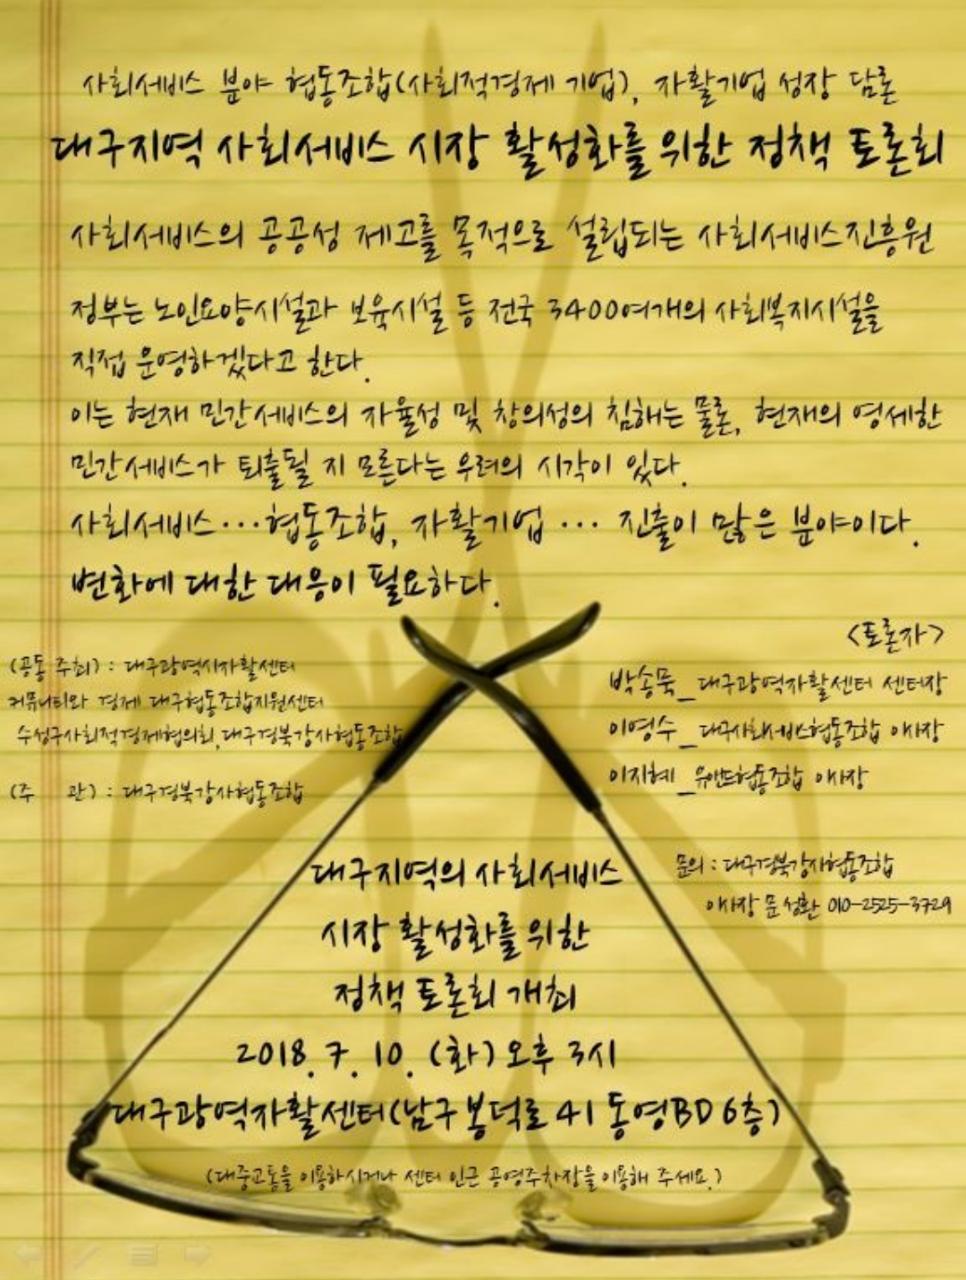 사회서비스 분야 협동조합(사회적경제 기업), 자활기업 성장 담론
대구지역 사회서비스 시장 활성화를 위한 정책 토론회
사회서비스의 공공성 제고를 목적으로 설립되는 사회서비스진흥원
정부는 노인요양시설과 보육시설 등 전국 3400여개의 사회복지시설을
직접 운영하겠다고 한다.
이는 현재 민간서비스의 자율성 및 창의성의 침해는 물론, 현재의 영세한
민간서비스가 퇴출될 지 모른다는 우려의 시각이 있다.
사회서비스...협동조합, 자활기업 ... 진출이 많은 분야이다.
변화에 대한 대응이 필요하다.
<토론자>
(공동 주최) : 대구광역시자활센터
커뮤니티와 경제 대구협동조합지원센터
수성구사회적경제협의회, 대구경북강사협동조합
(주 관) : 대구경북강사협동조합
박송묵_대구광역자활센터 센터장
이영수_대구사회서비스협동조합 이사장
이지혜_유앤드협동조합 이사장
문의 : 대구경북강사협동조합
이사장 문성환 010-2525-3729
대구지역의 사회서비스
시장 활성화를 위한
정책 토론회 개최
2018. 7. 10. (화) 오후 3시
대구광역자활센터(남구 봉덕로 41 동영BD 6층)
(대중교통을 이용하시거나 센터 인근 공영주차장을 이용해 주세요.)